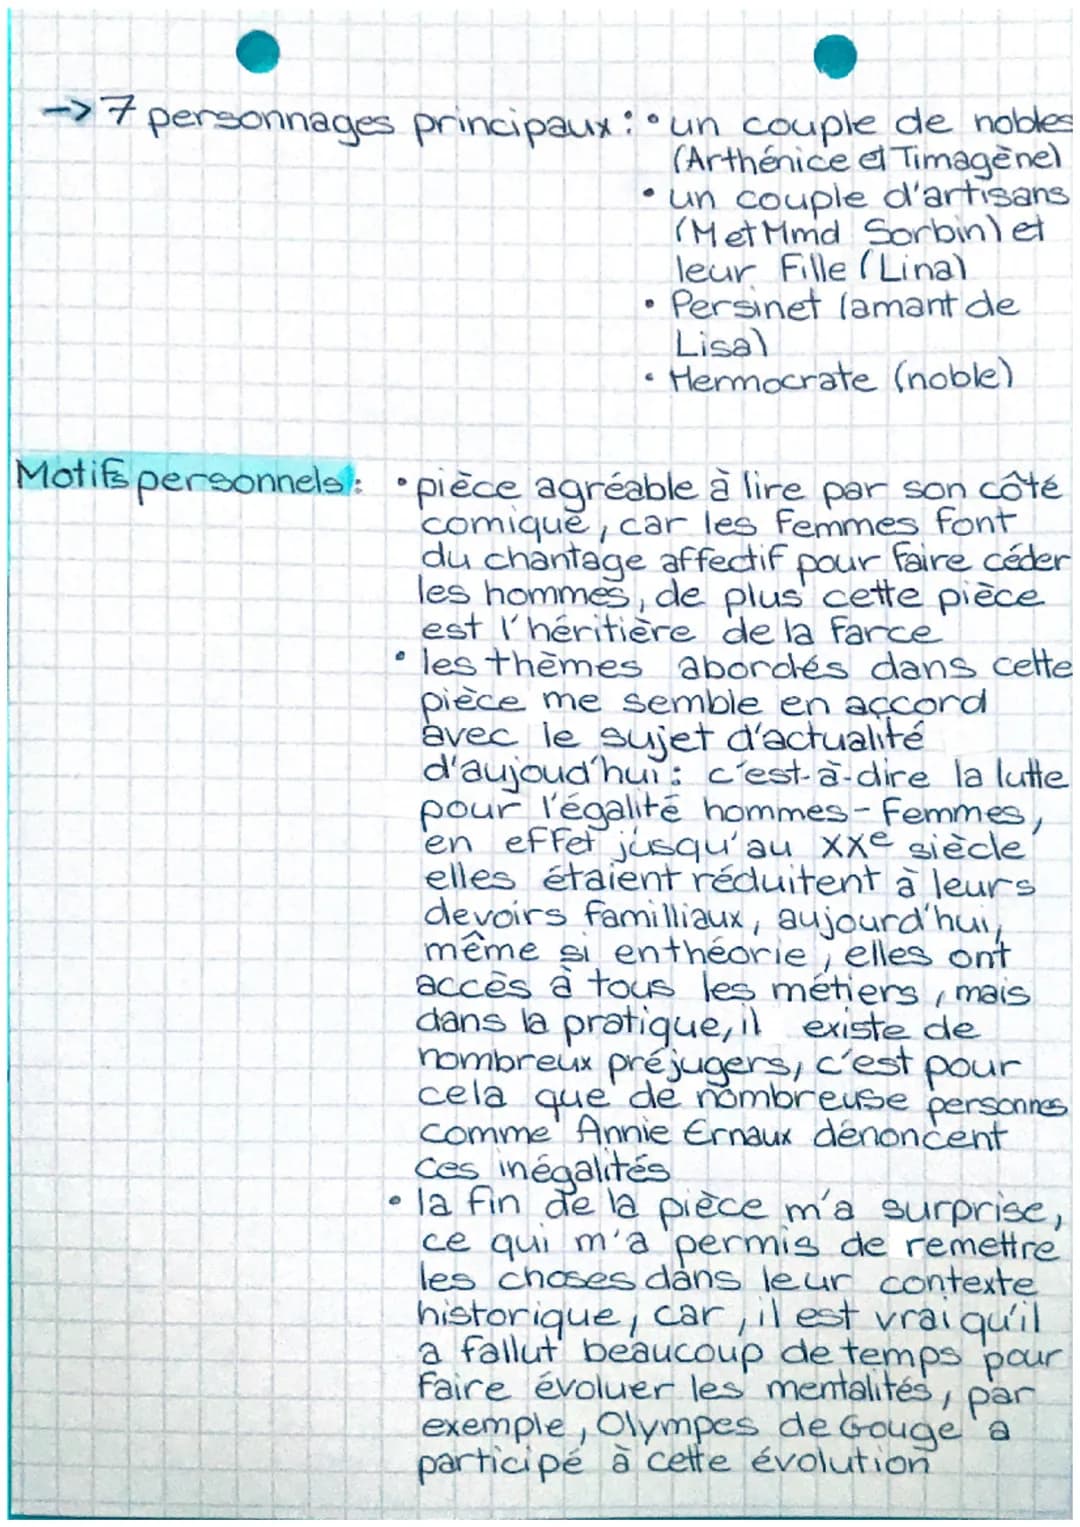 -> 7 personnages principaux : • un couple de nobles
(Arthénice et Timagène)
• un couple d'artisans
(M et Mmd Sorbin) et
leur Fille (Lina)
• Persinet (amant de
Lisa)
• Hermocrate (noble)
Motifs personnels : • pièce agréable à lire par son côté
comique, car les femmes font
du chantage affectif pour faire céder
les hommes, de plus cette pièce
est l'héritière de la farce
• les thèmes abordés dans cette
pièce me semble en accord
avec le sujet d'actualité
d'aujoud'hui : c'est-à-dire la lutte
pour l'égalité hommes - femmes,
en effet jusqu'au XXe siècle
elles étaient réduitent à leurs
devoirs familliaux, aujourd'hui,
même si enthéorie, elles ont
accès à tous les métiers, mais
dans la pratique, il existe de
nombreux préjugers, c'est pour
cela que de nombreuse personnes
comme Annie Ernaux dénoncent
ces inégalités
• la fin de la pièce m'a surprise,
ce qui m'a permis de remettre
les choses dans leur contexte
historique, car, il est vrai qu'il
a fallut beaucoup de temps pour
faire évoluer les mentalités, par
exemple, Olympes de Gouge a
participé à cette évolution